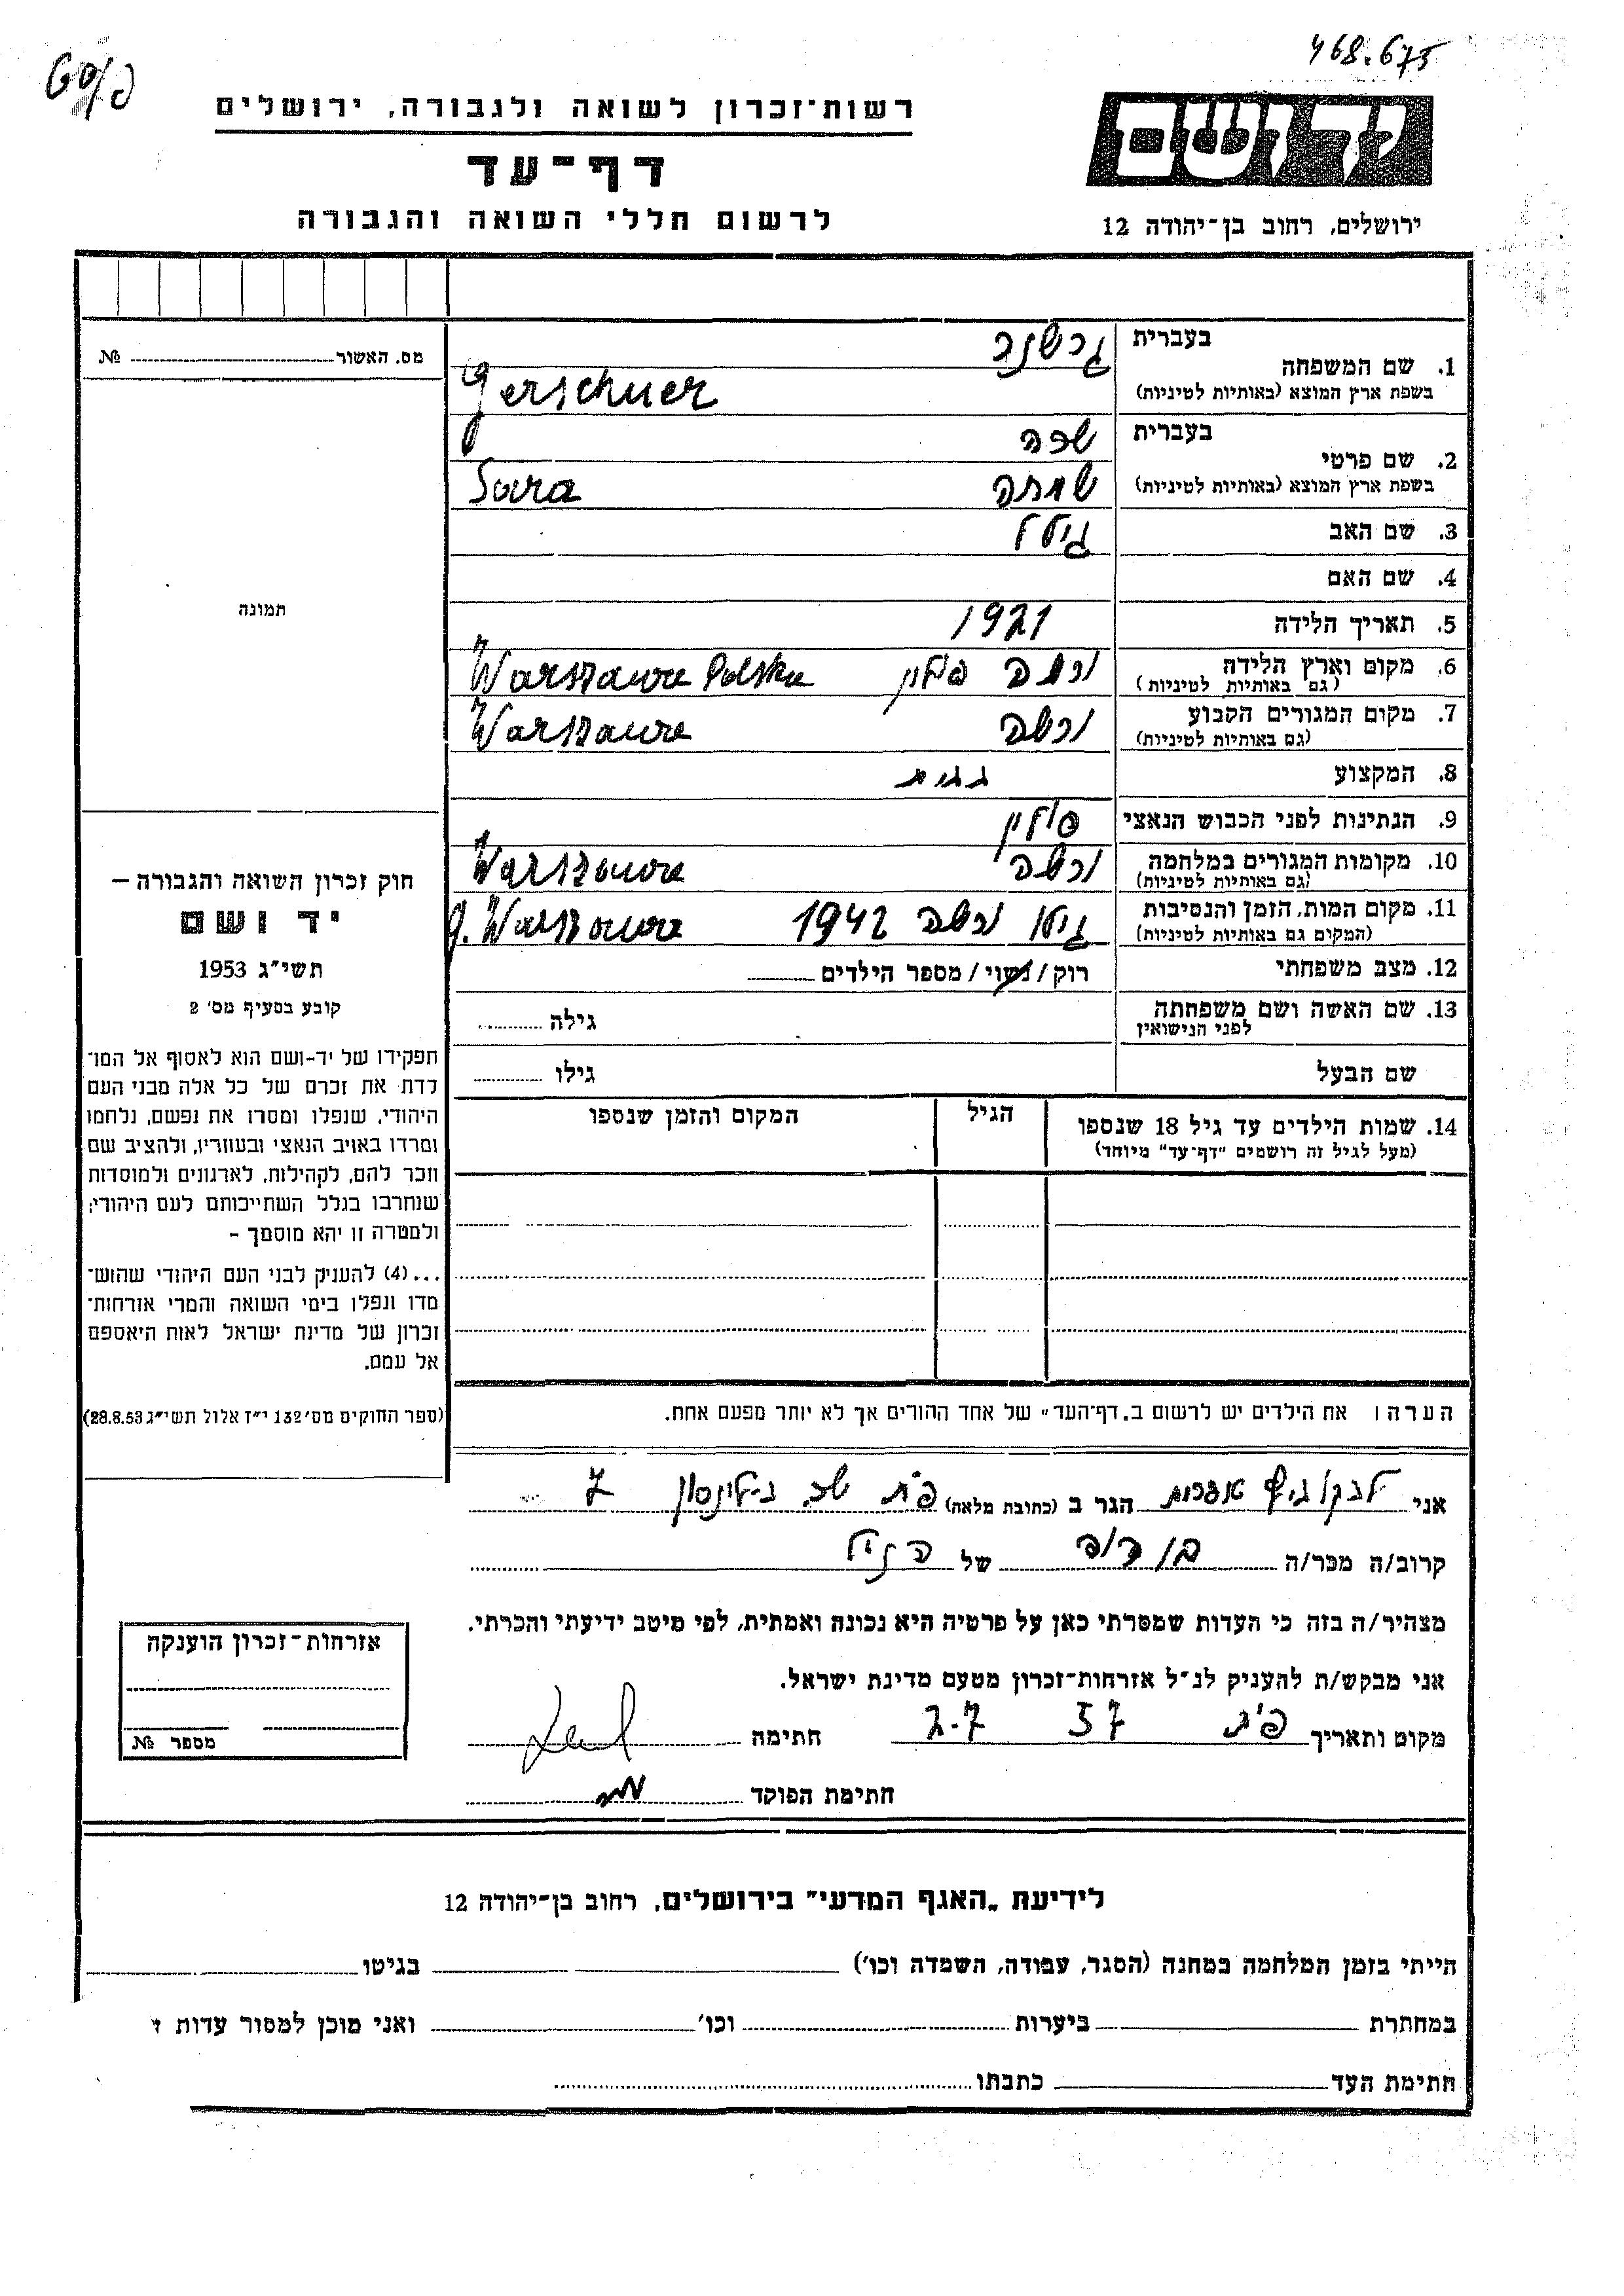 468.675
רשות־זכרון לשואה ולגבורה, ירושלים
יד ושם
דף־עד
לרשום חללי השואה והגבורה
ירושלים, רחוב בן־יהודה 12
מס. האשור №
1. שם המשפחה
בעברית גרשנר
בשפת ארץ המוצא (באותיות לטיניות) Gerschner
2. שם פרטי
בעברית שרה
בשפת ארץ המוצא (באותיות לטיניות) Sara
3. שם האב
4. שם האם
5. תאריך הלידה 1921
6. מקום וארץ הלידה ורשה פולין Warszawa Polska
(גם באותיות לטיניות)
7. מקום המגורים הקבוע ורשה Warszawa
(גם באותיות לטיניות)
8. המקצוע
9. הנתינות לפני הכבוש הנאצי פולין
10. מקומות המגורים במלחמה ורשה Warszawa
(גם באותיות לטיניות)
11. מקום המות, הזמן והנסיבות גיטו ורשה 1942 g. Warszawa
(המקום גם באותיות לטיניות)
12. מצב משפחתי רוק/נשוי/מספר הילדים
13. שם האשה ושם משפחתה גילה
לפני הנישואין
שם הבעל גילו
14. שמות הילדים עד גיל 18 שנספו הגיל המקום והזמן שנספו
(מעל לגיל זה רושמים "דף־עד" מיוחד)
תמונה
חוק זכרון השואה והגבורה –
יד ושם
תשי"ג 1953
קובע בסעיף מס' 2
תפקידו של יד-ושם הוא לאסוף אל המו־
לדת את זכרם של כל אלה מבני העם
היהודי, שנפלו ומסרו את נפשם, נלחמו
ומרדו באויב הנאצי ובעוזריו, ולהציב שם
וזכר להם, לקהילות, לארגונים ולמוסדות
שנחרבו בגלל השתייכותם לעם היהודי;
ולמטרה זו יהא מוסמך –
...(4) להעניק לבני העם היהודי שהוש־
מדו ונפלו בימי השואה והמרי אזרחות־
זכרון של מדינת ישראל לאות היאספם
אל עמם.
(ספר החוקים מס' 132 י"ז אלול תשי"ג 28.8.53)
הערה: את הילדים יש לרשום ב„דף־העד" של אחד ההורים אך לא יותר מפעם אחת.
אני הגר ב (כתובת מלאה) פ"ת 7
קרוב/ה מכר/ה בן דוד של
מצהיר/ה בזה כי העדות שמסרתי כאן על פרטיה היא נכונה ואמתית, לפי מיטב ידיעתי והכרתי.
אני מבקש/ת להעניק לנ"ל אזרחות־זכרון מטעם מדינת ישראל.
מקום ותאריך פ"ת 57 2-7 חתימה
חתימת הפוקד
אזרחות־זכרון הוענקה
מספר №
לידיעת „האגף המדעי" בירושלים, רחוב בן־יהודה 12
הייתי בזמן המלחמה במחנה (הסגר, עבודה, השמדה וכו') בגיטו
במחתרת ביערות וכו' ואני מוכן למסור עדות
חתימת העד כתבתו